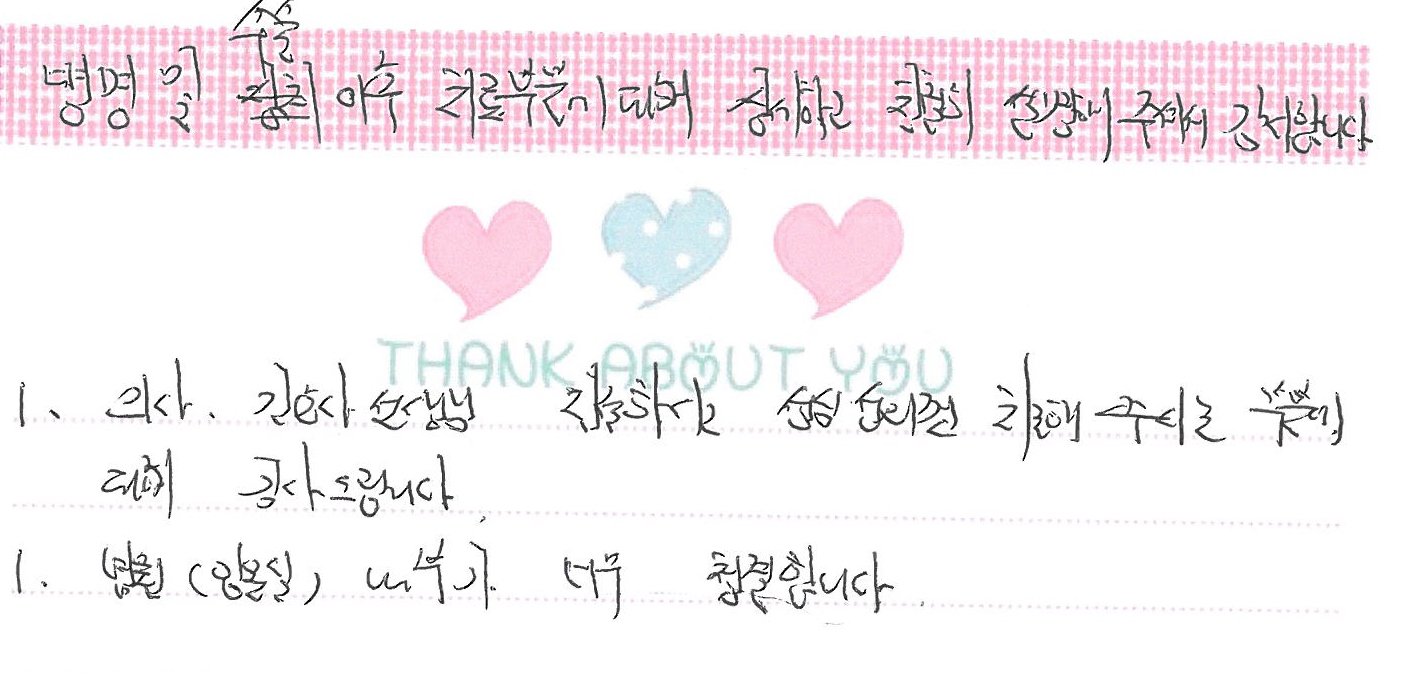 병명 및 수술 이후 치료부분에 대해 자세하고 친절히 설명해 주셔서 감사합니다
THANK ABOUT YOU
1. 의사. 간호사 선생님 친절하시고 성심 성의껏 치료해 주시는 부분에
대해 감사드립니다.
1. 병원 (입원실) 내부가 너무 청결합니다.